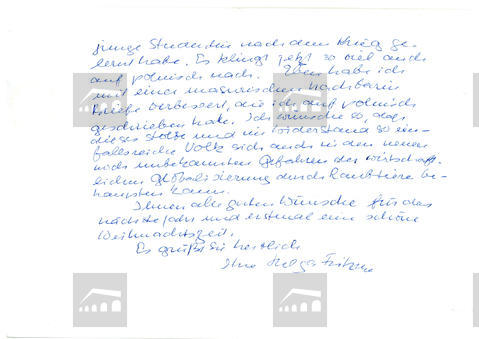 junge Studentin nach dem Krieg ge-
lernt habe. Es klingt jetzt so viel auch
auf polnisch nach. Eben habe ich
mit einer masurischen Nachbarin
Briefe verbessert, die ich auf polnisch
geschrieben habe. Ich wünsche so, dass
dieses stolze und im Widerstand so ein-
fallsreiche Volk sich auch in den neuen
noch unbekannten Gefahren der wirtschaft-
lichen Globalisierung durch Raubtiere be-
haupten kann.
Ihnen alle guten Wünsche für das
nächste Jahr und erstmal eine schöne
Weihnachtszeit.
Es grüßt Sie herzlich
Ihre